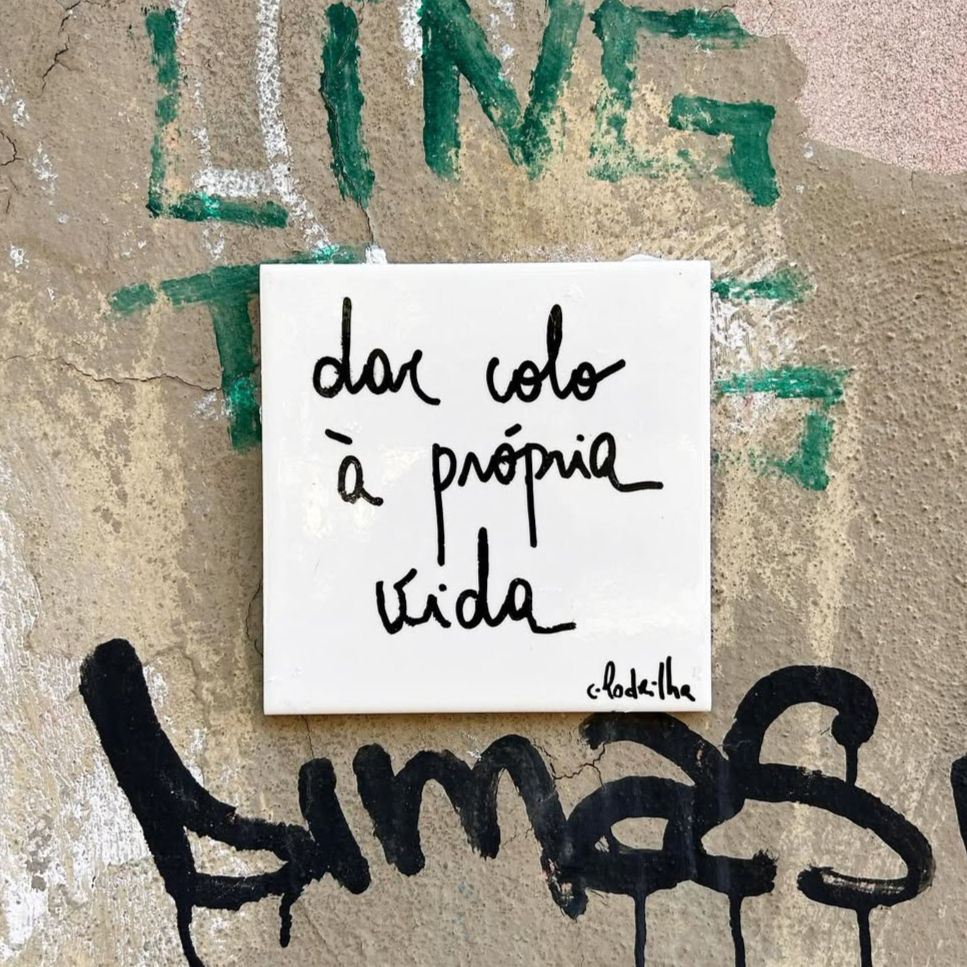 LING
dar colo
à própria
vida
c.ladrilha
Limas